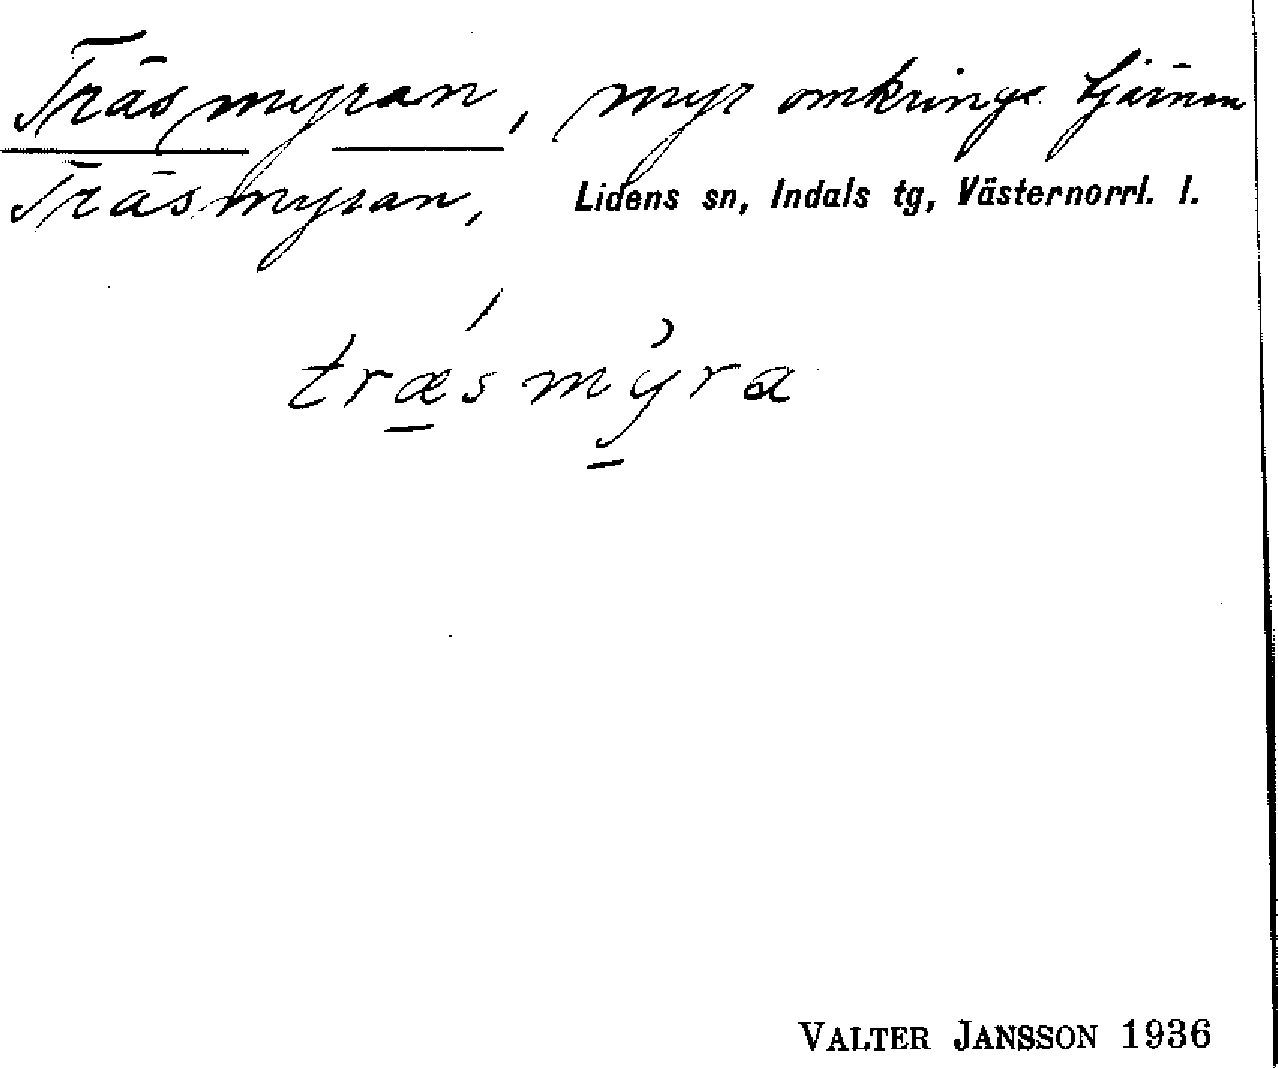 Träsmyran, myr omkring tjärnen
Träsmyran, Lidens sn, Indals tg, Västernorrl. l.
træsmyra
VALTER JANSSON 1936